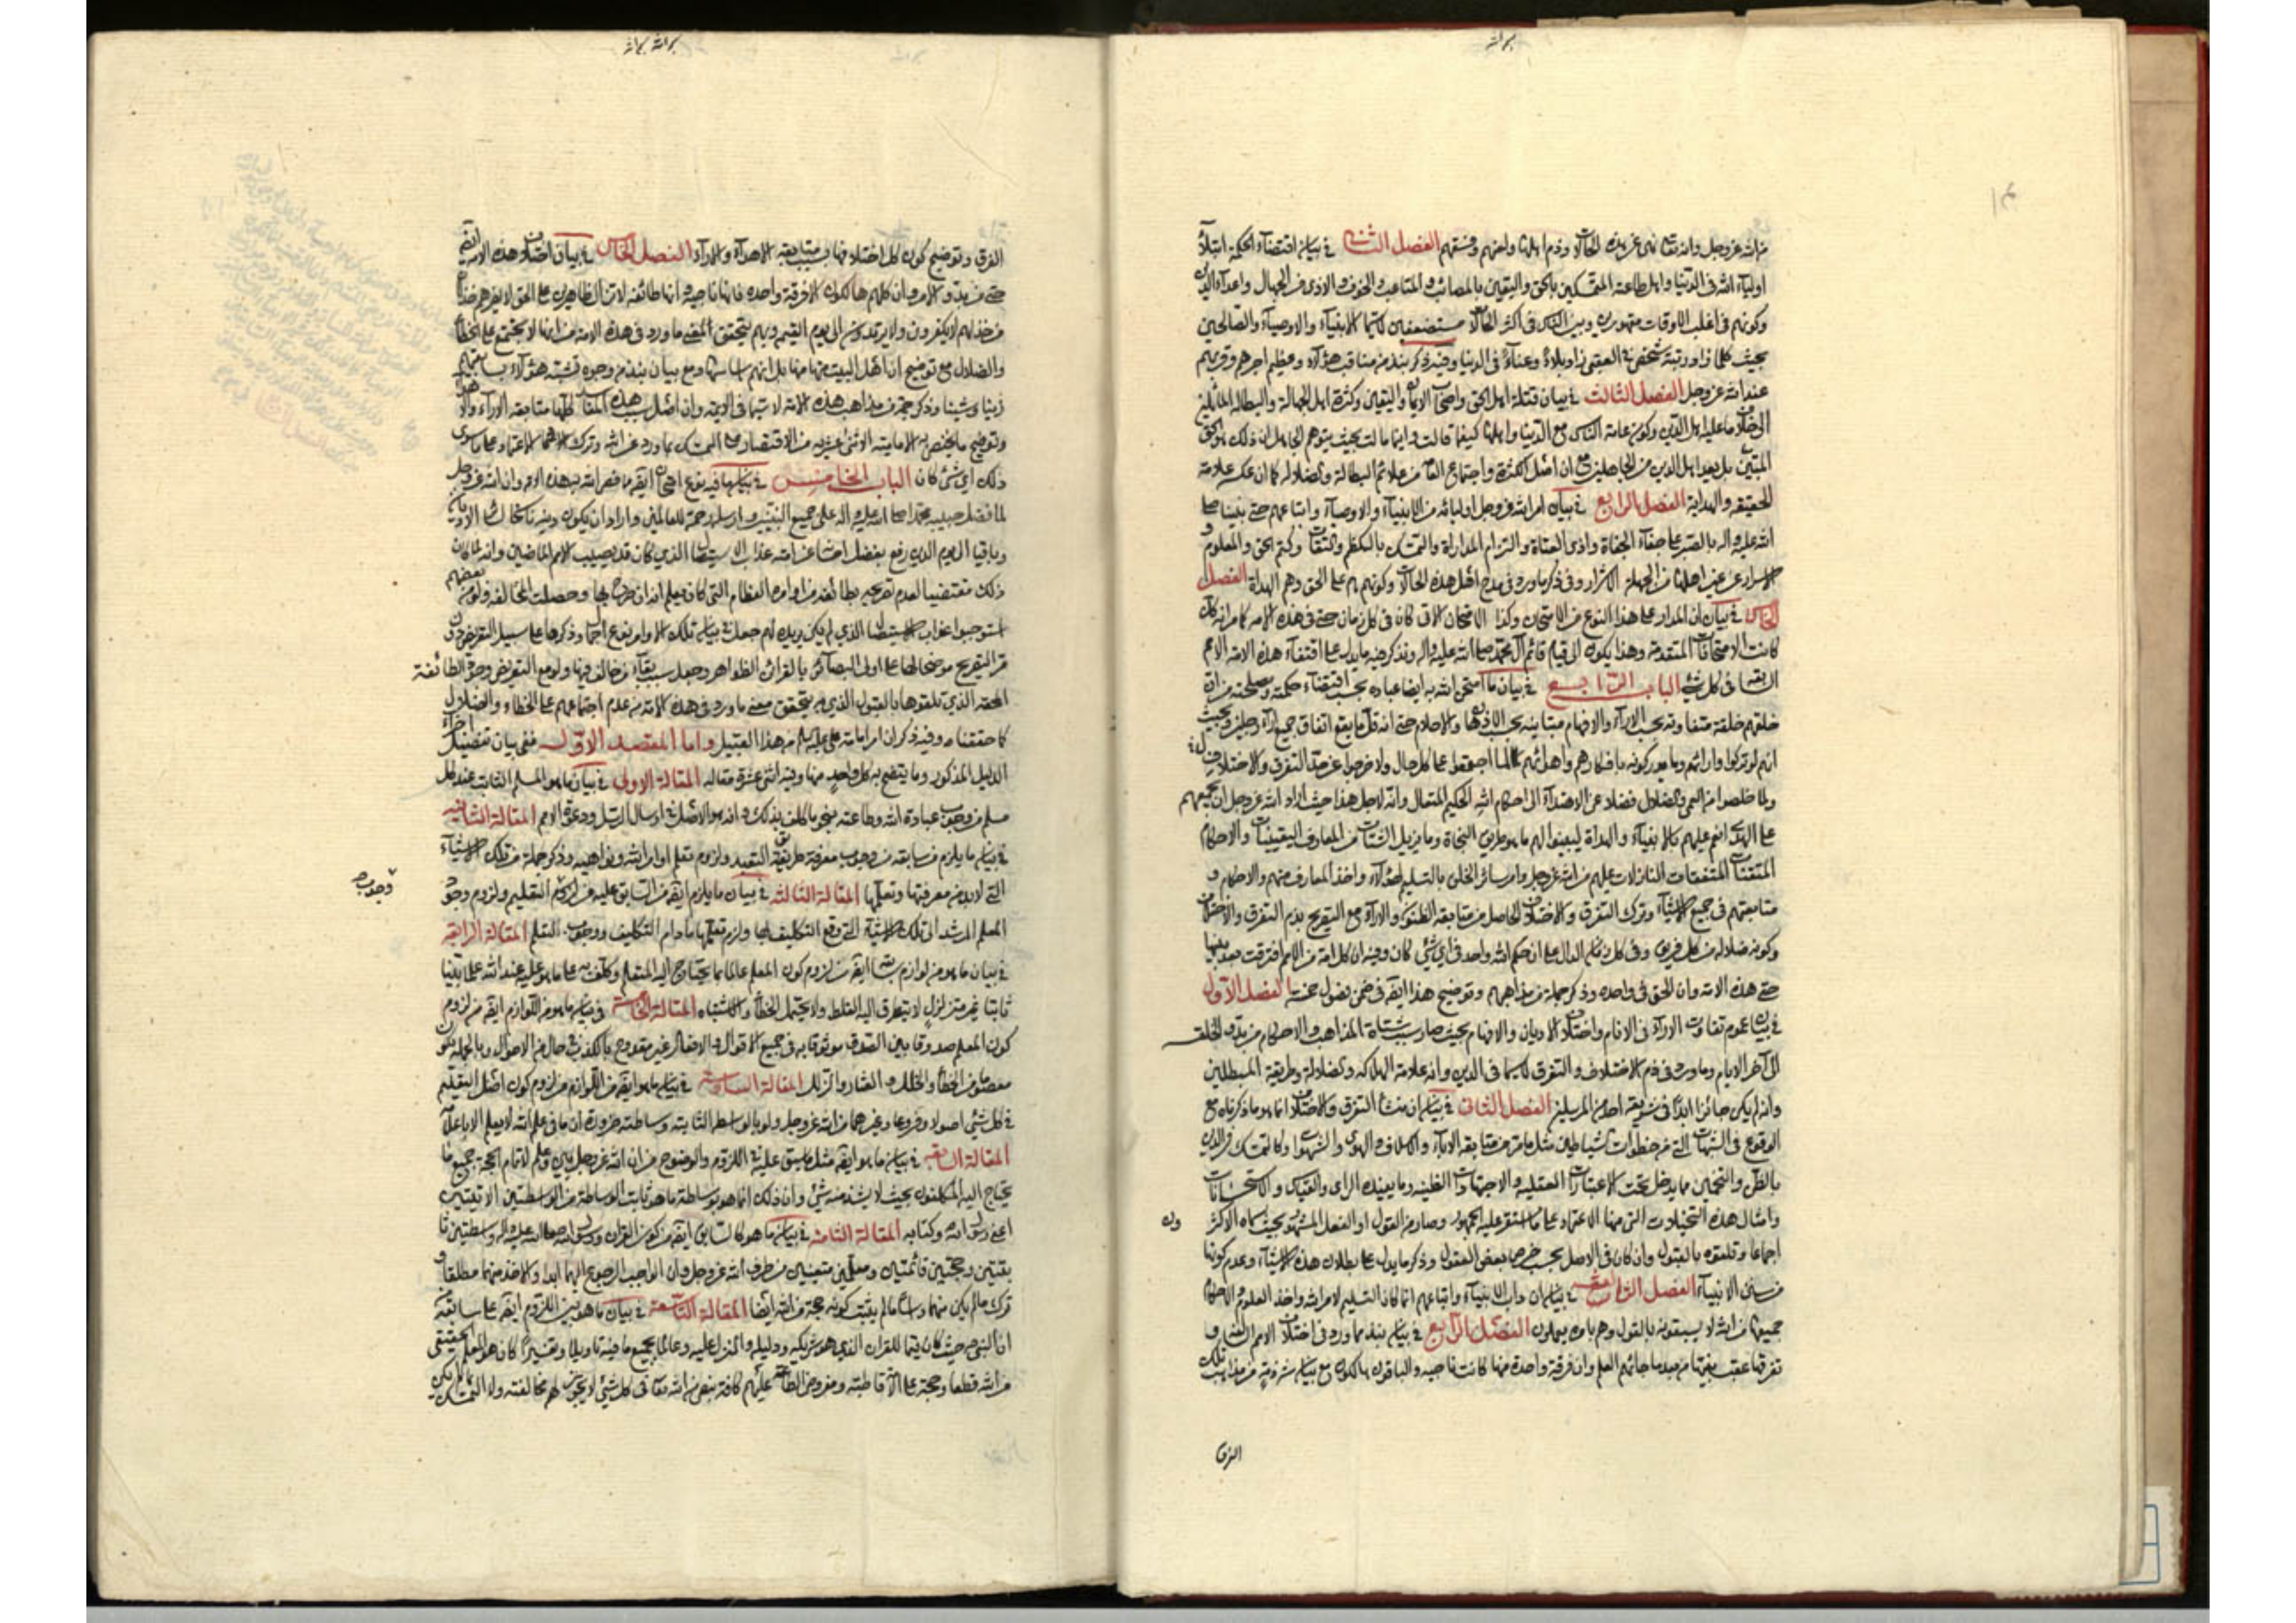 من الله عز وجل وانه تعالى نهى عن هذه الحالات وذم اهلها ولعنهم وفسقهم الفصل الثاني في بيان اقتضاء الحكمة ابتلاء
اولياء الله في الدنيا واهل طاعته المتمسكين بالحق واليقين بالمصائب والمتاعب والخوف والاذى من الجهال واعداء الدين
وكونهم في اغلب الاوقات مقهورين وبين الناس في اكثر الحالات مستضعفين لاسيما الانبياء والاوصياء والصالحين
بحيث كلما زاد رتبة شخص في العقبى زاد بلاء وعناء في الدنيا وفيه ذكر نبذ من مناقب هؤلاء وعظيم اجرهم وقربهم
عند الله عز وجل الفصل الثالث في بيان قلة اهل الحق واصحاب الايمان واليقين وكثرة اهل الجهالة والبطالة المائلين
الى خلاف ما عليه اهل الدين وكون عامة الناس مع الدنيا واهلها كيفما قالت واينما مالت بحيث يتوهم الجاهل ان ذلك هو الحق
المتين بل يعد اهل الدين من الجاهلين مع ان اصل الكثرة واجتماع العامة من علائم البطالة والضلالة كما ان عكسه علامة
الحقيقة والهداية الفصل الرابع في بيان امر الله عز وجل اوليائه من الانبياء والاوصياء واتباعهم حتى نبينا صلى
الله عليه واله بالصبر على جفاء الجفاة واذى العتاة والتزام المداراة والتمسك بالكظم والتقاة وكتم الحق والمعلوم و
الاسرار عن غير اهلها من الجهلة الاشرار وفي ذكر ما ورد في مدح اهل هذه الحالات وكونهم هم على الحق وهم الهداة الفصل
الخامس في بيان ان المدار على هذا النوع من الامتحان وكذا الامتحان الاتي كان في كل زمان حتى في هذه الامة كما انه كان
كانت الامتحانات المتقدمة وهذا يكون الى قيام قائم آل محمد صلى الله عليه واله ونذكر فيه ما يدل على اقتفاء هذه الامة الامم
السابقة في كل شيء الباب الرابع في بيان ما امتحن الله به ايضا عباده بحسب اقتضاء حكمته ومصلحته من ان
خلقهم خلقة متفاوتة بحسب الاراء والافهام متباينة بحسب الاذهان والاحلام حتى انه قل ما يقع اتفاق جميع اراء رجلين بحيث
انهم لو تركوا وارائهم وما يدركونه بافكارهم واهوائهم لما اجتمعوا على كل حال ولا خرجوا عن حد التفرق والاختلاف
ولما خلصوا من العمى والضلال فضلا عن الاهتداء الى احكام الله الحكيم المتعال وانه لاجل هذا حيث اراد الله عز وجل ان يجمعهم
على الهدى انعم عليهم بالانبياء والهداة ليبينوا لهم ما هو طريق النجاة وما يزيل الشتات من المعارف اليقينيات والاحكام
المتقنات المتفقات النازلات عليهم من الله عز وجل وامر سائر الخلق بالتسليم لهؤلاء واخذ المعارف منهم والاحكام و
متابعتهم في جميع الاشياء وترك التفرق والاختلاف الحاصل من متابعة الظنون والاراء مع التصريح بذم التفرق والاختلاف
وكونه ضلالة من كل فريق وفي كل زمان الدال على ان حكم الله واحد في اي شيء كان وفيه ان كل امة من الامم افترقت بعد نبيها
حتى هذه الامة وان الحق في واحدة وذكر جملة من مذاهبهم وتوضيح هذا ايضا في ضمن فصول خمسة الفصل الاول
في بيان عموم تفاوت الاراء في الانام واختلاف الاديان والافهام بحيث صار سبب شتات المذاهب والاحكام من بدو الخلقة
الى آخر الايام وما ورد في ذم الاختلاف والتفرق لاسيما في الدين وانه علامة الهلاكة والضلالة وطريقة المبطلين
وانه لم يكن جائزا ابدا في شريعة احد من المرسلين الفصل الثاني في بيان ان منشأ التفرق والاختلاف انما هو ما ذكرناه مع
الوقوع في الشبهات التي من خطوات الشياطين مثل ما مر من متابعة الاباء والاسلاف والهوى والشهوات وكالتمسك في الدين
بالظن والتخمين مما يدخل تحت الاعتبارات العقلية والاجتهادات الظنية وما يفيده الراي والقياس والاستحسانات
وامثال هذه التخيلات التي منها الاعتماد على ما استقر عليه الجمهور وصار من القول او الفعل المشهور بحيث سماه الاكثر
اجماعا وتلقوه بالقبول وان كان في الاصل بحسب خرص بعض العقول وذكر ما يدل على بطلان هذه الاشياء وعدم كونها
من سنن الانبياء الفصل الثالث في بيان ان داب الانبياء واتباعهم انما كان التسليم لامر الله واخذ العلوم والاحكام
جميعها من الله لا يسبقونه بالقول وهم بامره يعملون الفصل الرابع في بيان نبذ مما ورد في اختلاف الامم السالفة و
تفرقها عقب نبيها من بعد ما جائهم العلم وان فرقة واحدة منها كانت ناجية والباقون هالكون مع بيان شرذمة من مذاهب تلك
الفرق
الفرق وتوضيح كون كل اختلاف منها بسبب متابعة الاهواء والاراء الفصل الخامس في بيان اختلاف هذه الامة ايضا
حتى في بدو الامر وان كلهم هالكون الا فرقة واحدة فانها ناجية وانها طائفة لا تزال ظاهرين على الحق لا يضرهم خذلان
من خذلهم لا يكفرون ولا يرتدون الى يوم القيمة وبهم يتحقق المعنى ما ورد في هذه الامة من انها لا تجتمع على الخطأ
والضلال مع توضيح ان اهل البيت منها بل انهم اساسها ومع بيان نبذ من وجوه تشبه هؤلاء بسابقيهم
وتوضيح ما يختص به الامامية الاثنى عشرية من الاقتصار على التمسك بما ورد عن الله وترك الاعتماد على ما سوى
ذلك اي شيء كان الباب الخامس في بيان ما فيه نوع امتحان ايضا من الله لهذه الامة وان الله عز وجل
لما فضل حبيبه محمدا صلى الله عليه واله على جميع النبيين وارسله رحمة للعالمين واراد ان يكون دينه ناسخا لسائر الاديان
وباقيا الى يوم الدين رفع بفضل عن امته عذاب الاستيصال الذي كان قد يصيب الامم الماضين وانه لما كان
ذلك مقتضيا لعدم تصريحه بطائفة من اوامره العظام التي كان يعلم انه ان صرح بها وحصلت المخالفة ولو من بعضهم
استوجبوا عذاب الاستيصال الذي لم يكن يريده لهم جعل في بيان تلك الاوامر نوع اجمال وذكرها على سبيل التعريض دون
التصريح موضحا لها على اولى البصائر بالقرائن الظواهر وجعل سبب بقاء من خالف فيها ولو مع التعريض وجود الطائفة
المحقة الذين تلقوها بالقبول الذين بهم يتحقق معنى ما ورد في هذه الامة من عدم اجتماعهم على الخطاء والضلال
كما حققناه وفيه ذكر ان امر امامة علي عليه السلام من هذا القبيل واما المقصد الاول ففي بيان تفصيل اجزاء
الدليل المذكور وما يتضح به كل واحد منها وفيه اثنى عشرة مقالة المقالة الاولى في بيان ما هو المسلم الثابت عند كل
مسلم من وجوب عبادة الله وطاعته بنحو ما كلف بذلك وانه هو الاصل في ارسال الرسل ودعوة الامم المقالة الثانية
في بيان ما يلزم من سابقه من وجوب معرفة طريقة التعبد ولزوم تعلم اوامر الله ونواهيه وذكر جملة من تلك الاشياء
التي لابد من معرفتها وتعلمها المقالة الثالثة في بيان ما يلزم ايضا من السابق عليه من لزوم التعليم ولزوم وجود
المعلم المرشد الى تلك الاشياء التي وقع التكليف بها ولزم تعلمها ما دام التكليف ووجوب التعلم المقالة الرابعة
في بيان ما هو من لوازم ايضا من لزوم كون المعلم عالما بما يحتاج اليه المتعلم وكلف به على ما هو عليه عند الله علما يقينا
ثابتا غير متزلزل لا يتطرق اليه الغلط ولا يحتمل الخطأ والاشتباه المقالة الخامسة في بيان ما هو من اللوازم ايضا من لزوم
كون المعلم صدوقا بين الصدق موثوقا به في جميع الاقوال والافعال غير مقدوح بالكذب في حال من الاحوال وبالجملة يكون
معصوما من الخطأ والخلل والعثار والزلل المقالة السادسة في بيان ما هو ايضا من اللوازم من لزوم كون اصل التعليم
في كل شيء اصولا وفروعا وغيرهما من الله عز وجل ولو بالواسطة الثابتة وساطته ضرورة ان ما في علم الله لا يعلم الا باعلامه
المقالة السابعة في بيان ما هو ايضا مثل ما سبق عليه في اللزوم والوضوح من ان الله عز وجل بين وعلم لاتمام الحجة جميع ما
يحتاج اليه المكلفون بحيث لا يشذ منه شيء وان ذلك انما هو بوساطة ما هو ثابت الوساطة من الواسطتين الاتيتين
اعني رسول الله وكتابه المقالة الثامنة في بيان ما هو كالسابق ايضا من كون القران ورسول الله صلى الله عليه واله واسطتين
وحجتين قائمتين ومعلمين متعينين من طرف الله عز وجل وان الواجب الرجوع اليهما ابدا والاخذ منهما مطلقا و
ترك ما لم يكن منهما راسا ما لم يثبت كونه حجة من الله ايضا المقالة التاسعة في بيان ما هو بين اللزوم ايضا على سابقه من
ان النبي ص حيث كان قيما للقران الذي هو شريكه ودليله والمنزل عليه وعالما بجميع ما فيه تاويلا وتفسيرا كان هو المعلم الحقيقي
من الله قطعا وحجة على الامة قاطبة ومفروض الطاعة عليهم كافة بنص من الله تعالى في كل شيء لا يجوز لهم مخالفته ولا التمسك بما لم يكن